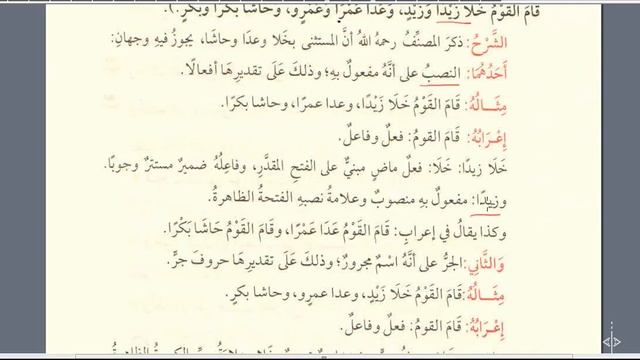 قَامَ القَوْمُ خَلَا زَيْدًا وَزَيْدٍ، وَعَدَا عَمْرًا وَعَمْرٍو، وَحَاشَا بَكْرًا وَبَكْرٍ.).
الشَّرْحُ: ذكرَ المصنِّفُ رحمهُ اللهُ أنَّ المستثنى بخَلا وعدَا وحاشَا، يجوزُ فيهِ وجهانِ:
أَحَدُهُمَا: النصبُ على أنَّهُ مفعولٌ بهِ؛ وذلكَ عَلَى تقديرِهَا أفعالًا.
مِثَـالُهُ: قَامَ القَوْمُ خَلَا زَيْدًا، وعدا عمرًا، وحاشا بكرًا.
إِعْـرَابُهُ: قَامَ القومُ: فعلٌ وفاعلٌ.
خَلَا زيدًا: خَلَا: فعلٌ ماضٍ مبنيٌّ على الفتحِ المقدَّرِ، وفاعِلُهُ ضميرٌ مستترٌ وجوبًا.
وزيدًا: مفعولٌ بهِ منصوبٌ وعلامةُ نصبهِ الفتحةُ الظاهرةُ.
وكذا يقالُ في إعرابِ: قَامَ القَوْمُ عَدَا عَمْرًا، وقَامَ القَوْمُ حَاشَا بَكْرًا.
وَالثَّانِي: الجرُّ على أنَّهُ اسْمٌ مجرورٌ؛ وذلكَ عَلَى تقديرِهَا حروفَ جرٍّ.
مِثَـالُهُ: قَامَ القَوْمُ خَلَا زَيْدٍ، وعدا عمرٍو، وحاشا بكرٍ.
إِعْـرَابُهُ: قَامَ القومُ: فعلٌ وفاعلٌ.